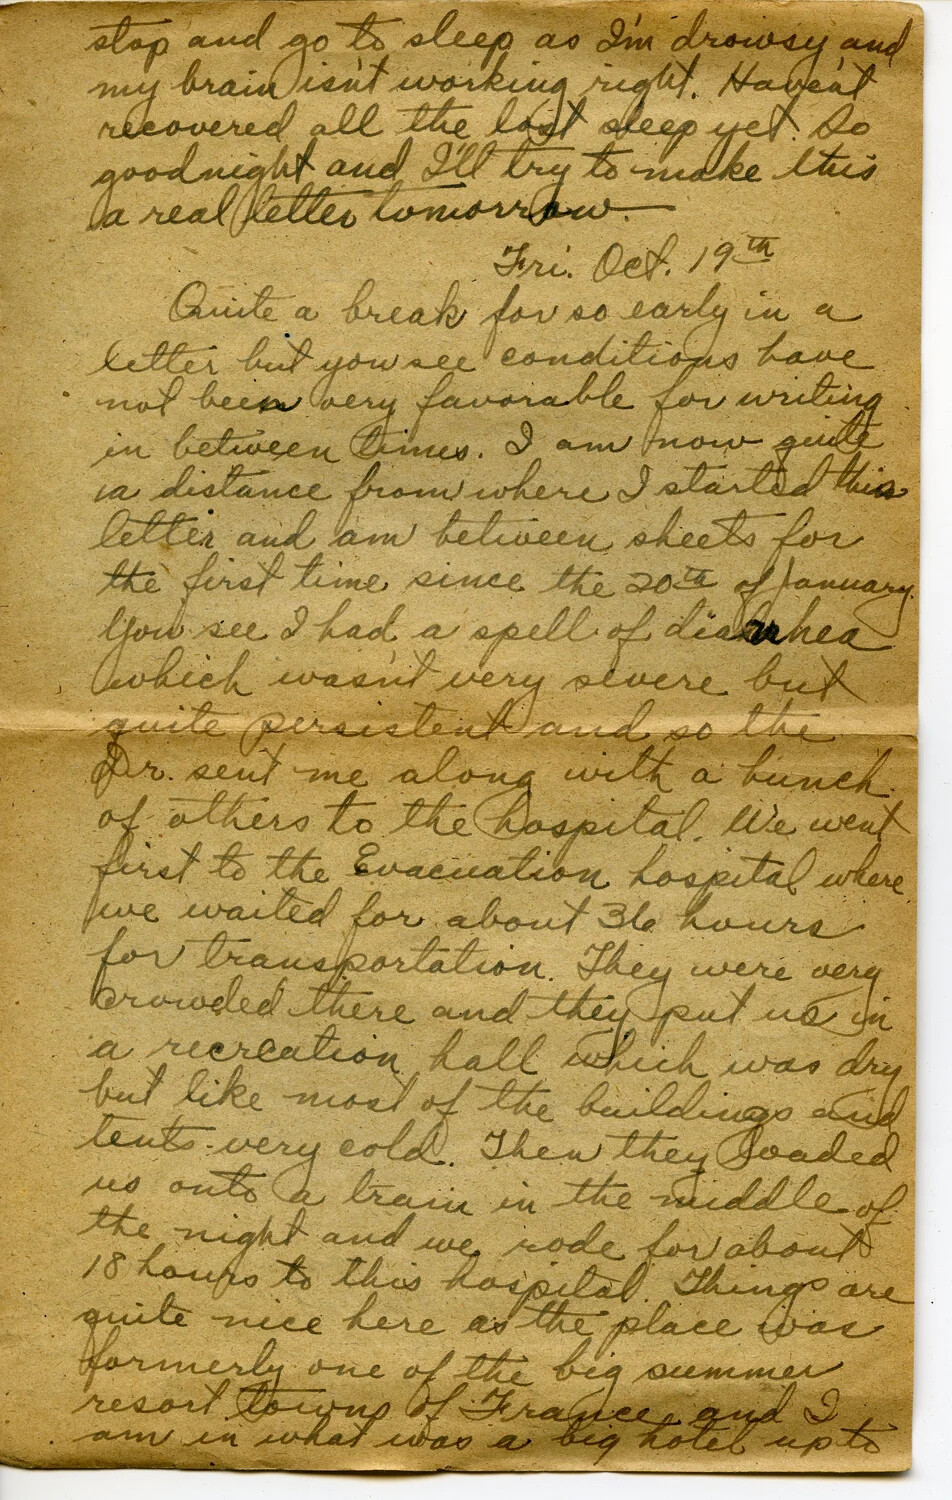 stop and go to sleep as I'm drowsy and
my brain isn't working right. Haven't
recovered all the lost sleep yet. So
goodnight and I'll try to make this
a real letter tomorrow.—
Fri. Oct. 19th
Quite a break for so early in a
letter but you see conditions have
not been very favorable for writing
in between times. I am now quite
a distance from where I started this
letter and am between sheets for
the first time since the 20th of January.
You see I had a spell of diarrhea
which wasn't very severe but
quite persistent and so the
Dr. sent me along with a bunch
of others to the hospital. We went
first to the Evacuation hospital where
we waited for about 36 hours
for transportation. They were very
crowded there and they put us in
a recreation hall which was dry
but like most of the buildings and
tents very cold. Then they loaded
us onto a train in the middle of
the night and we rode for about
18 hours to this hospital. Things are
quite nice here as the place was
formerly one of the big summer
resort towns of France and I
am in what was a big hotel up to